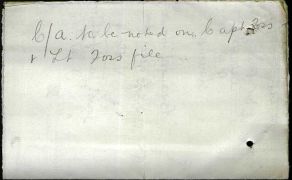 C/a. to be noted on Capt
& Lt Foss file